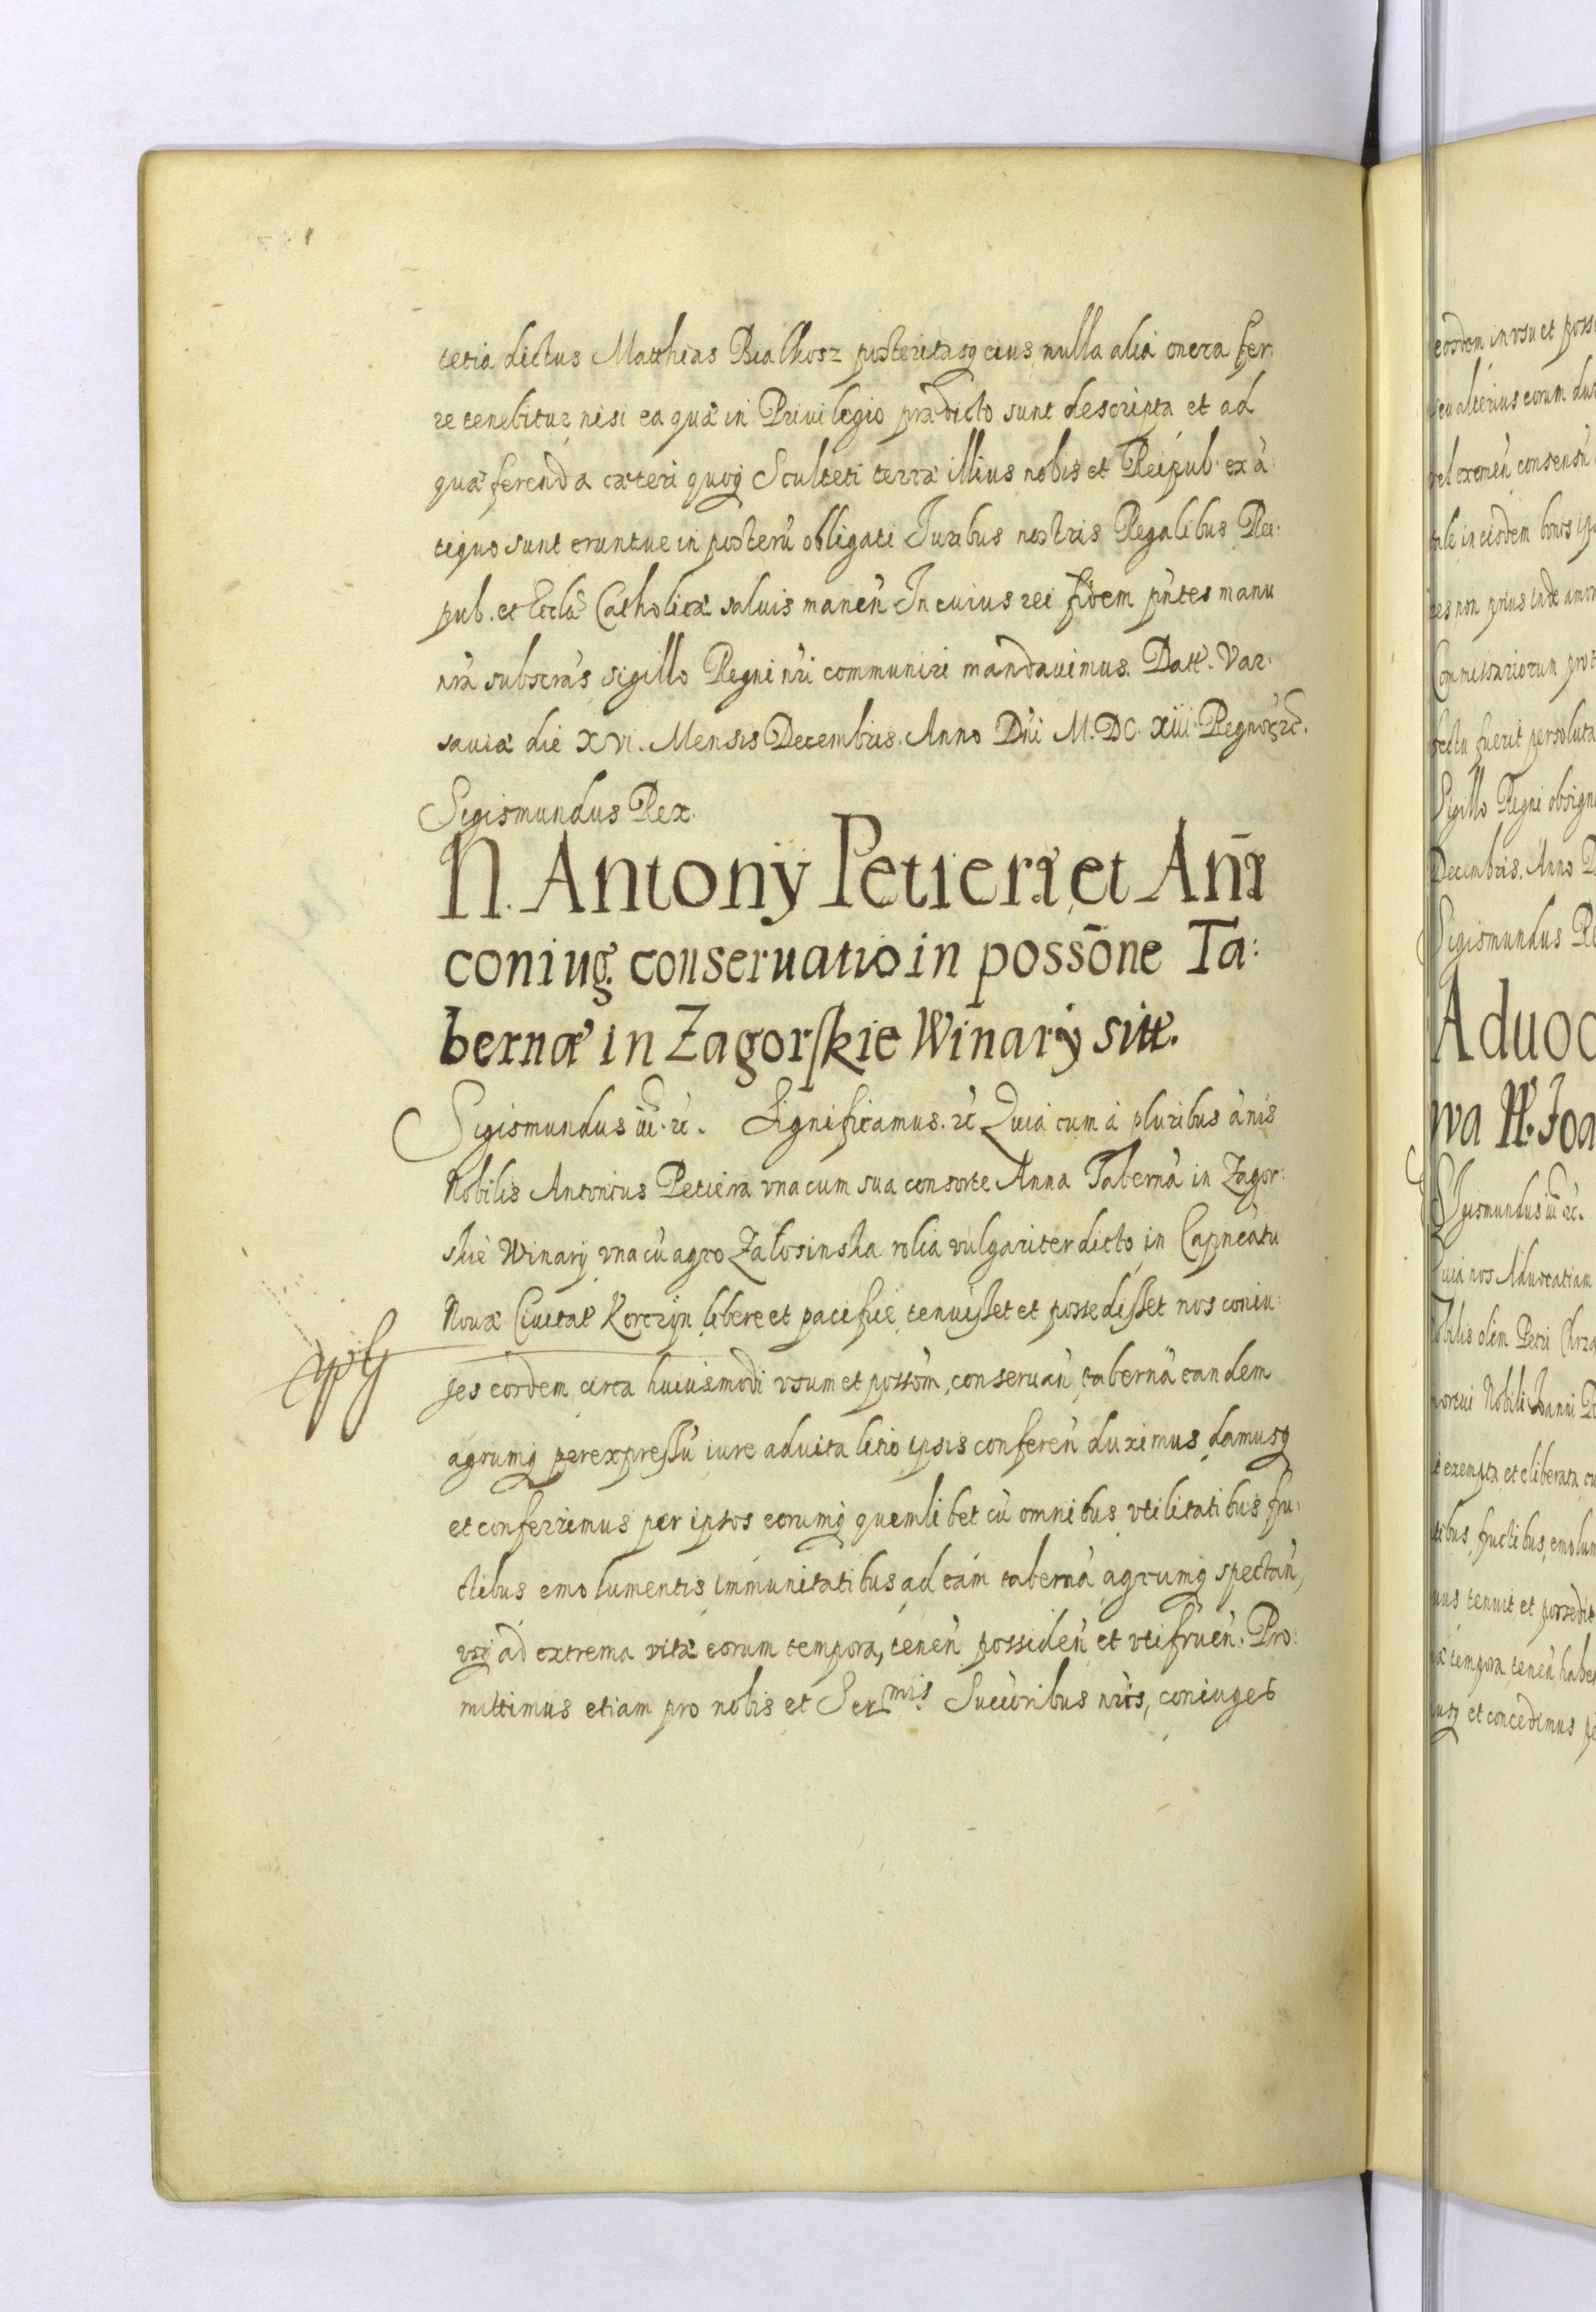 tetia dictus Matthias Bialkosz posteritasq eius, nulla alia onera fer:
re tenebitur nisi ea quæ in Privilegio prædicto sunt descripta et ad
quæ ferenda cæteri quoq Sculteti terræ illius nobis et Reipub. ex ā:
tiquo sunt eruntue in posterū obligati Iuribus nostris Regalibus Rei:
pub. et Ecclæ Catholicæ saluis maneñ In cuius rei fidem pn̄tes manu
nr̄a subscr̄as sigillo Regni nr̄i communiri mandauimus. Datt. Var:
sauiæ die XVI. Mensis Decembris. Anno Dn̄i M.DC.XIII. Regnor̄
Sigismundus Rex.
N. Antonÿ Petieræ et Ann̄æ
coniug. conseruatio in possōne Ta:
bernæ in Zagorskie Winarÿ sitæ.
Sigismundus iii. rc. Significamus. rc Quia cum à pluribus ānis
Nobilis Antonius Petiera vna cum sua consorte Anna Tabernā in Zagor:
skie Winarÿ vna cū agro Zatosinska rolia vulgariter dicto, in Capn̄eatu
Nouæ Ciuitat Korczÿn libere et pacifice tenuisset et possedisset nos coniu:
ges eosdem circa huiusmodi vsum et possōm, conseruañ tabernā eandem
agrumq per expressū iure aduitalitio ipsis conferen̄ duximus damusq
et conferrimus per ipsos eorumq quemlibet cū omnibus vtilitatibus fru:
ctibus emolumentis immunitatibus ad eam tabernā agrumq spectañ,
vsq ad extrema vitæ eorum tempora, teneñ possideñ et vtifrueñ. Pro:
mittimus etiam pro nobis et Ser^mis Succoribus nr̄is, coniuges
eosdem in vsu et poss
seu alterius eorum
consensu
in eisdem bonis
non prius inde
Commissariorum
fuerit persoluta
Sigillo Regni
Decembris. Anno
Sigismundus Re
Aduoc
wa N. Joa
Sigismundus iii. rc.
Quia nos Aduocatiam
olim Petri
Nobili Joanni
exempta et eliberata
fructibus, emolum
tenuit et possedit
tempora teneñ habeñ
et concedimus